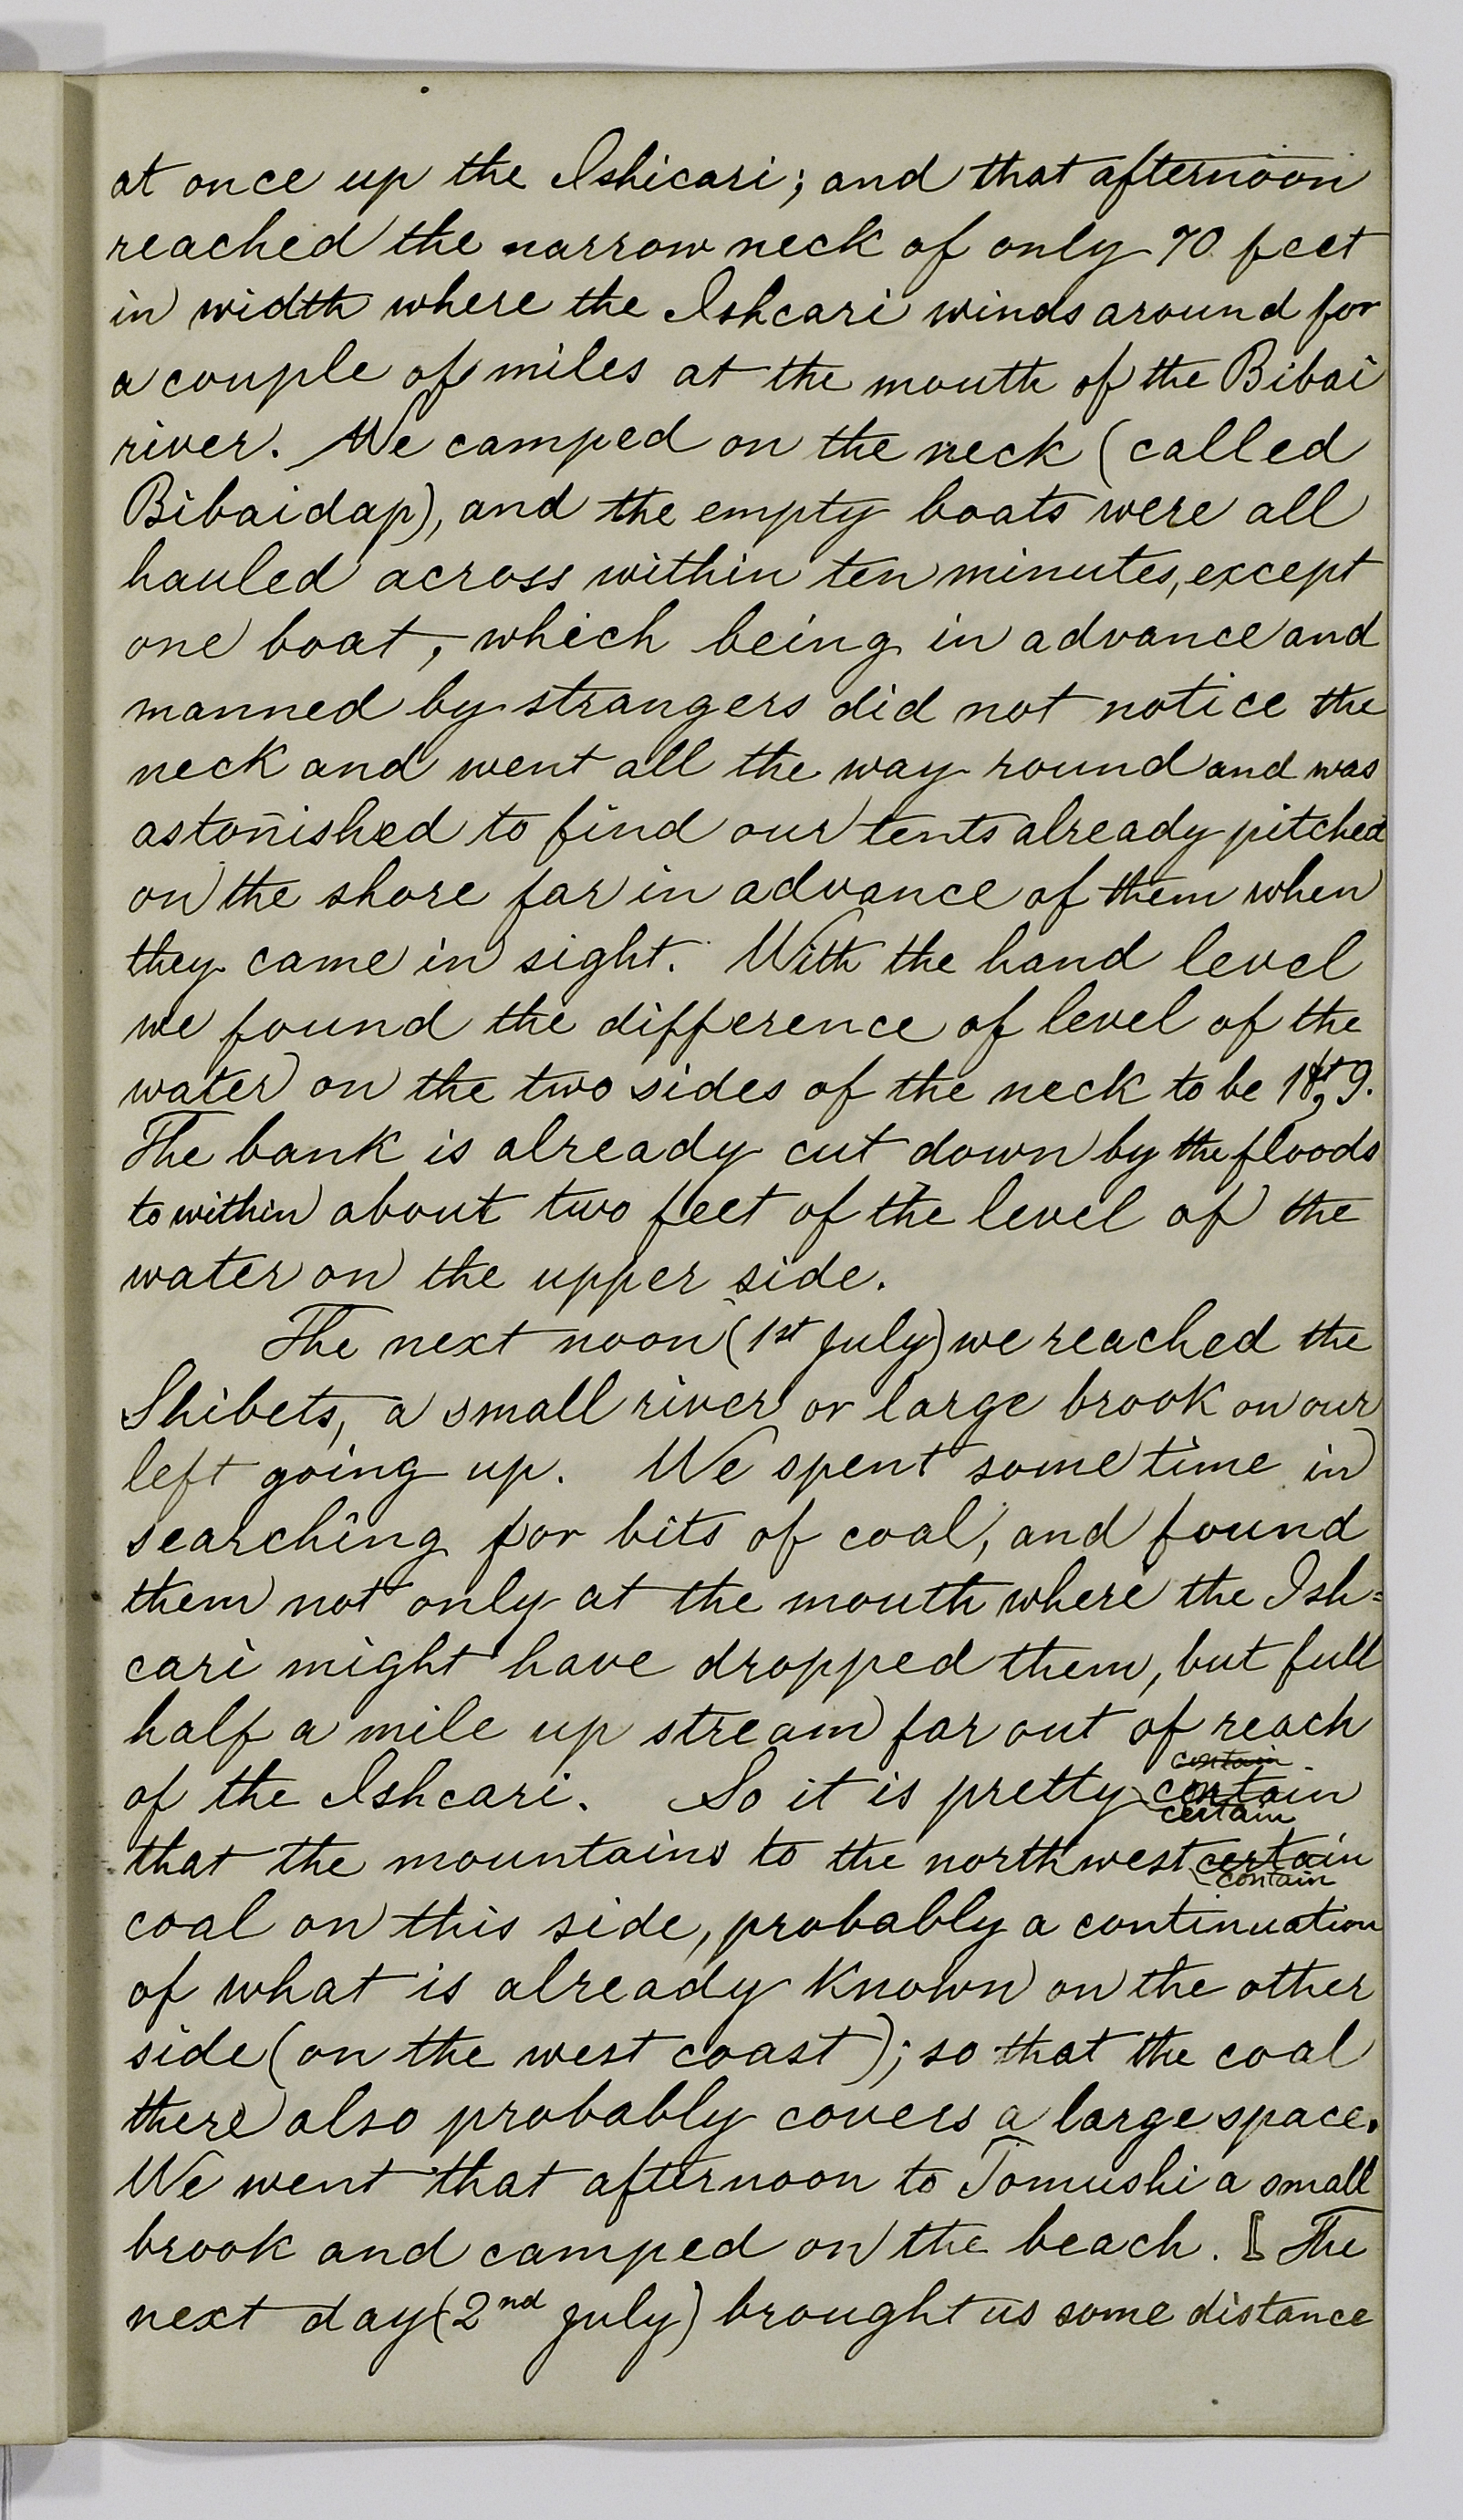 at once up the Ishicari; and that afternoon
reached the narrow neck of only 70 feet
in width where the Ishcari winds around for
a couple of miles at the mouth of the Bibai
river. We camped on the neck (called
Bibaidap), and the empty boats were all
hauled across within ten minutes, except
one boat, which being in advance and
manned by strangers did not notice the
neck and went all the way round and was
astonished to find our tents already pitched
on the shore far in advance of them when
they came in sight. With the hand level
we found the difference of level of the
water on the two sides of the neck to be 1ft,9.
The bank is already cut down by the floods
to within about two feet of the level of the
water on the upper side.
The next noon (1st July) we reached the
Shibets, a small river or large brook on our
left going up. We spent some time in
searching for bits of coal, and found
them not only at the mouth where the Ish=
cari might have dropped them, but full
half a mile up stream far out of reach
contain
of the Ishcari. So it is pretty certain
certain
that the mountains to the northwest certain
contain
coal on this side, probably a continuation
of what is already known on the other
side (on the west coast); so that the coal
there also probably covers a large space.
We went that afternoon to Tomushi a small
brook and camped on the beach. [ The
next day (2nd July) brought us some distance